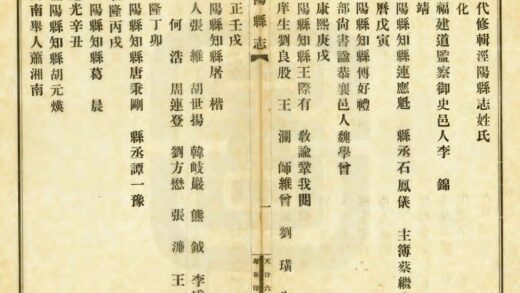 代修輯涇陽縣志姓氏
化
福建道監察御史邑人李 錦
靖
陽縣知縣連應魁 縣丞石鳳儀 主簿蔡繼
曆戊寅
陽縣知縣傅好禮
部尚書謚恭襄邑人魏學曾
康熙庚戌
陽縣知縣王際有 教諭鞏我閣
庠生劉良股 王 瀾 師維曾 劉 璜
陽縣志
一
天津
正壬戌
陽縣知縣屠 楷
人張 維 胡世揚 韓岐嚴 熊 鉞 李
何 浩 周連登 劉方懋 張 濂 王
隆丁卯
陽縣知縣唐秉剛 縣丞譚一豫
隆丙戌
陽縣知縣葛 晨
光辛丑
陽縣知縣胡元煐
南舉人蕭湘南